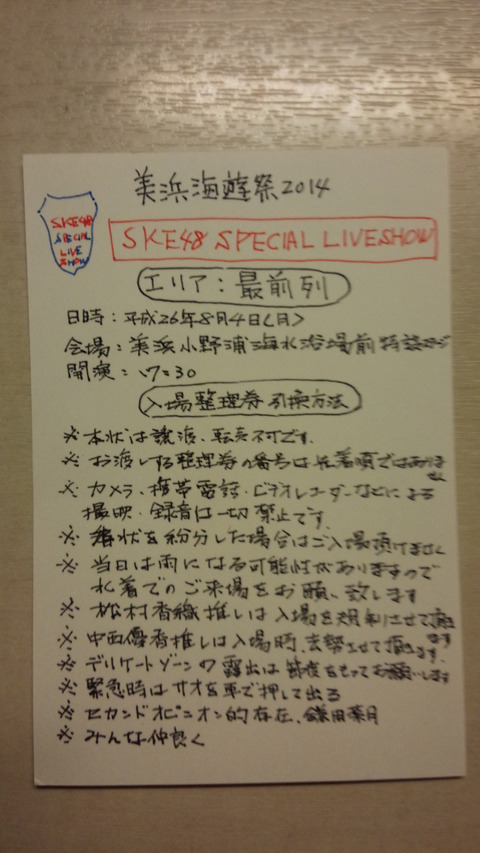 美浜海遊祭2014
SKE48
SPECIAL
LIVE
SHOW
SKE48 SPECIAL LIVESHOW
エリア:最前列
日時:平成26年8月4日(月)
会場:美浜小野浦海水浴場前特設ステージ
開演:17:30
入場整理券引換方法
※本状は譲渡、転売不可です。
※お渡しする整理券の番号は先着順ではありません
※カメラ、携帯電話、ビデオレコーダーなどによる
撮映、録音は一切禁止です。
※本状を紛分した場合はご入場頂けません
※当日は雨になる可能性がありますので
水着でのご来場をお願い致します
※松村香織推しは入場を規制させて頂きます
※中西優香推しは入場時、去勢させて頂きます。
※デリケートゾーンの露出は節度をもってお願いします
※緊急時はサオを車で押して出る
※セカンドオピニオン的存在、鎌田菜月
※みんな仲良く